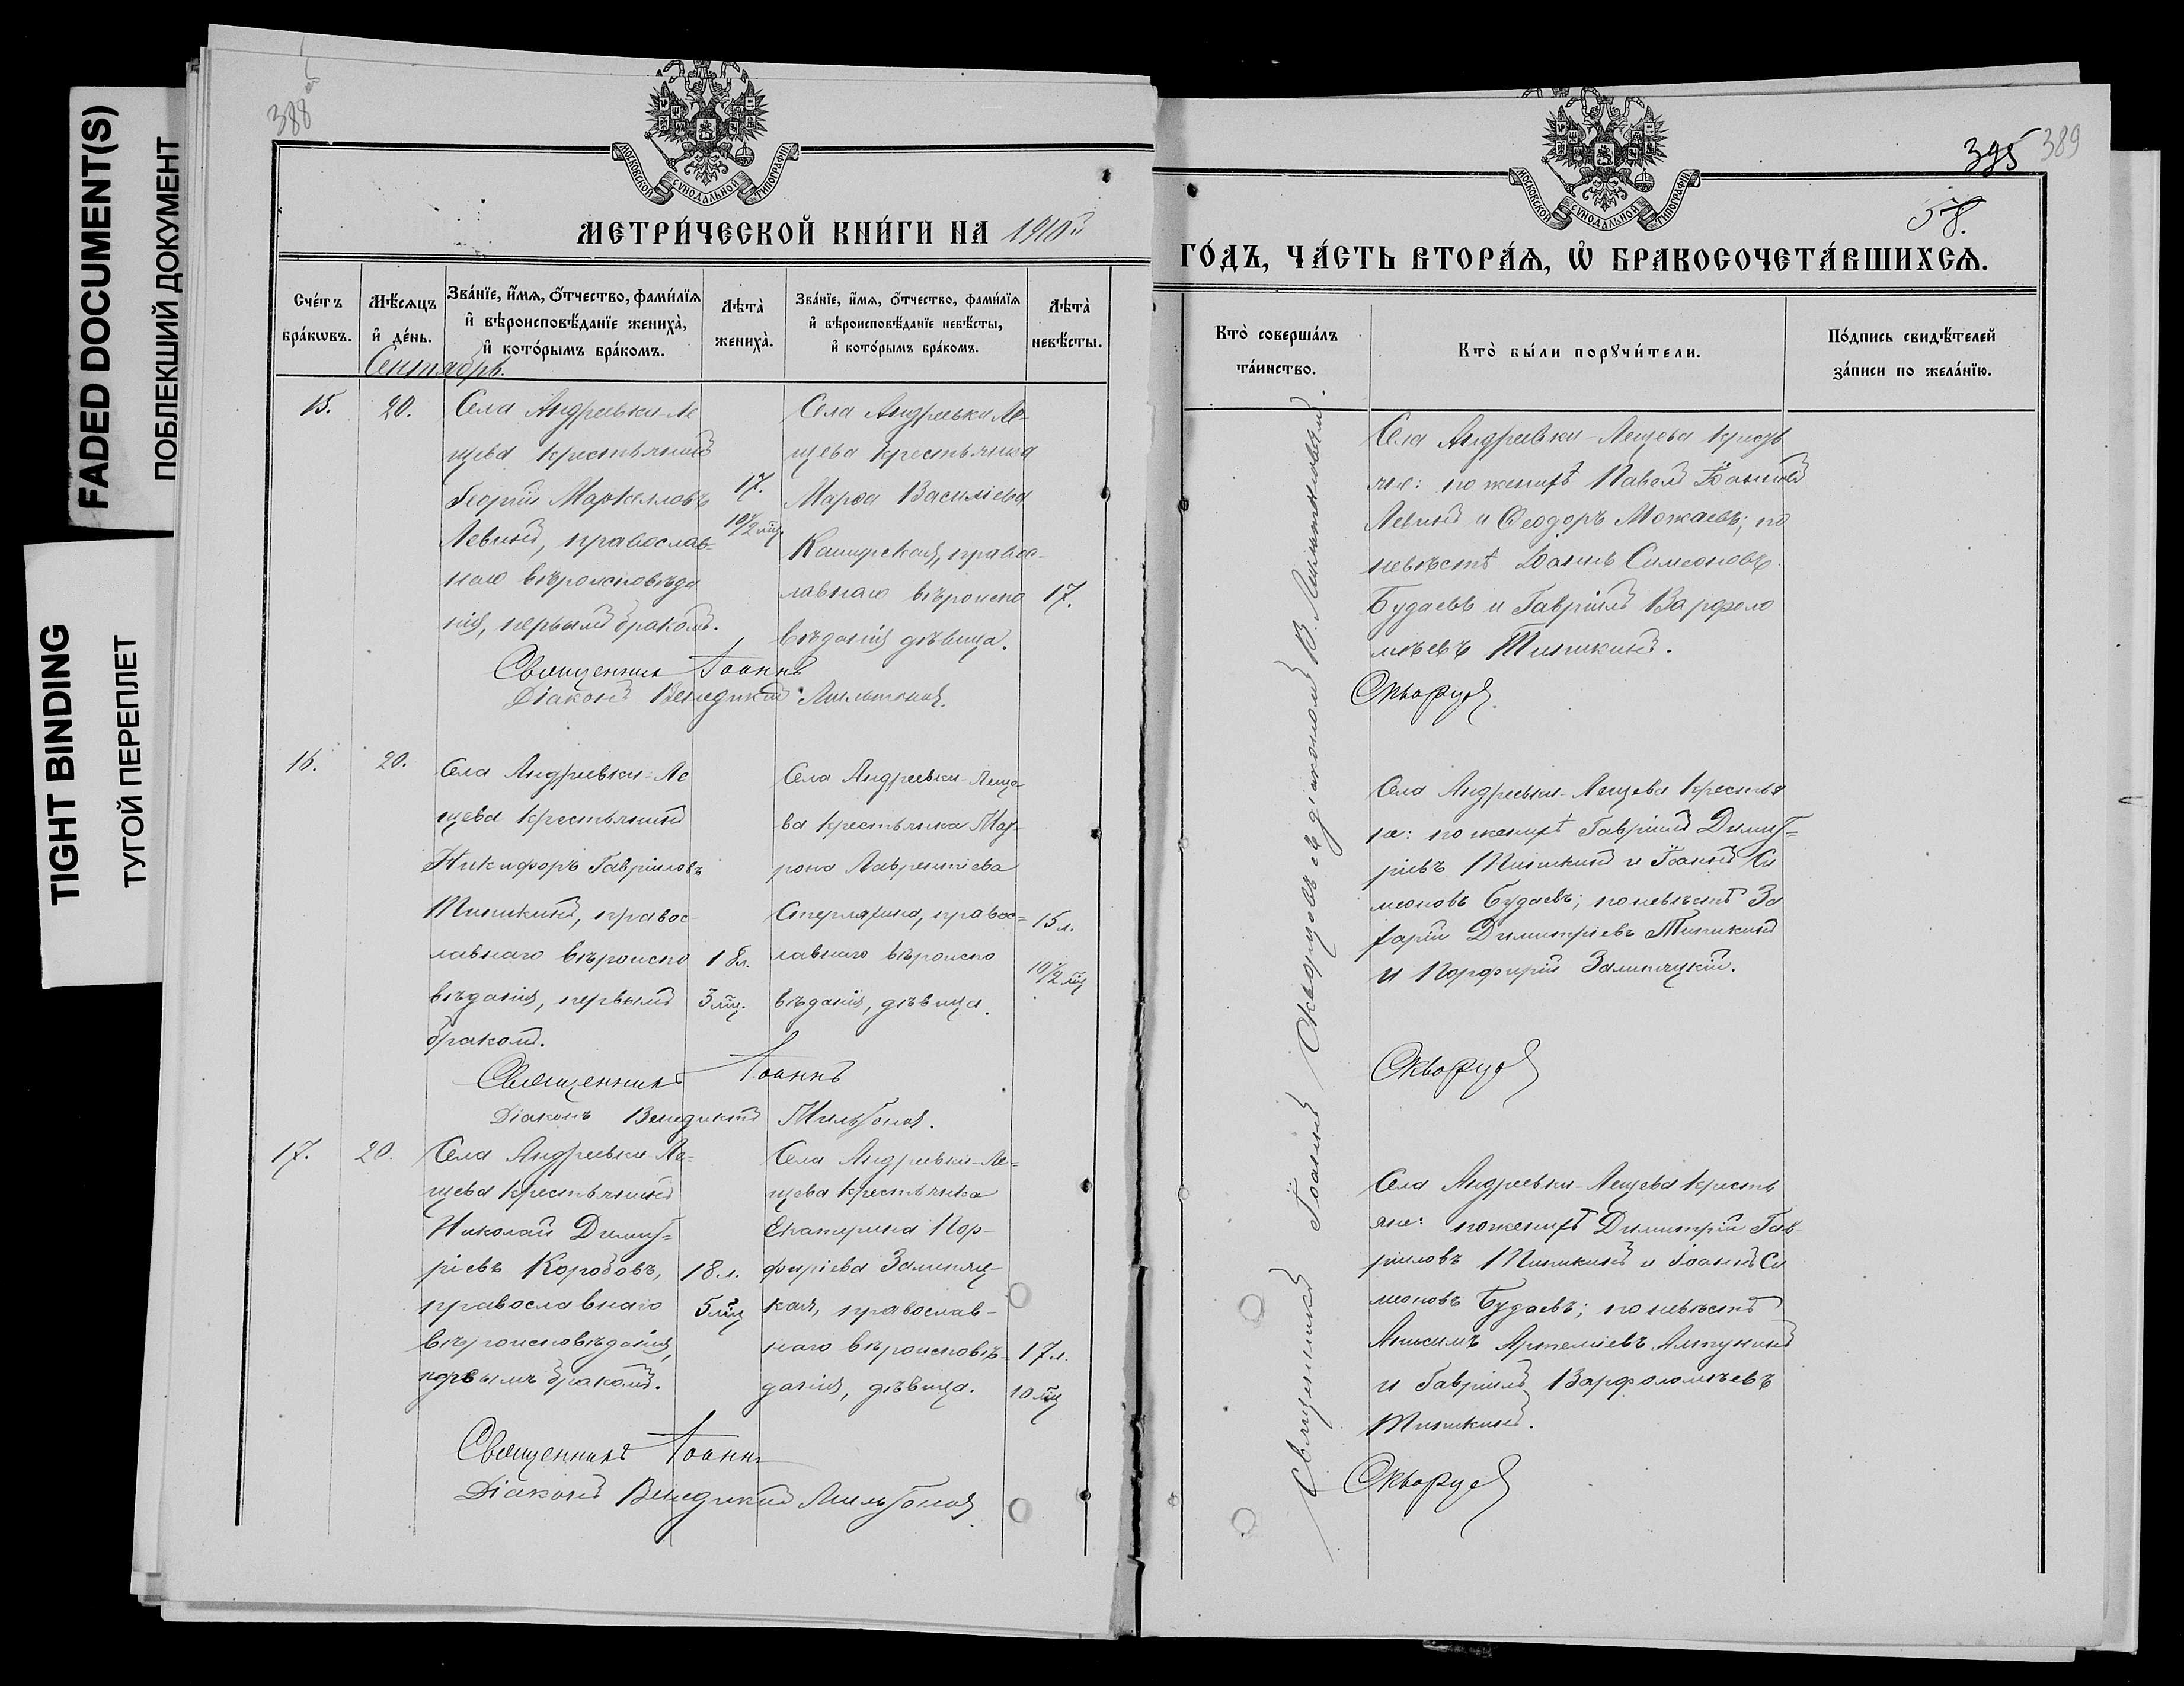 FADED DOCUMENT(S)
ПОБЛЕКШИЙ ДОКУМЕНТ
TIGHT BINDING
ТУГОЙ ПЕРЕПЛЕТ
388
МОСКОВСКОЙ СѴНОДАЛЬНОЙ ТИПОГРАФІИ
МЕТРИ́ЧЕСКОЙ КНИ́ГИ НА 1910й
Сче́тъ бра́кѡвъ.
Мѣ́сяцъ и҆ де́нь.
Зва́нїе, и҆́мѧ, ѻ҆́тчество, фамѝлїѧ
и҆ вѣроисповѣ́данїе женихà,
и҆ кото́рымъ бра́комъ.
Лѣта̀ женихà.
Зва́нїе, и҆́мѧ, ѻ҆́тчество, фамѝлїѧ
и҆ вѣроисповѣ́данїе невѣ́сты,
и҆ кото́рымъ бра́комъ.
Лѣта̀ невѣ́сты.
Сентябрь.
15.
20.
Села Андреевки-Ле
щева крестьянинъ
Георгій Маркелловъ
Левинъ, православ-
наго вѣроисповѣда
нія, первымъ бракомъ.
17.
10½ мц
Села Андреевки Ле-
щева крестьянка
Марѳа Василіева
Каширская, правос-
лавнаго вѣроиспо
вѣданія дѣвица.
17.
Священникъ Іоаннъ
Діаконъ Венедиктъ
16.
20.
Села Андреевки-Ле
щева крестьянинъ
Никифоръ Гавріиловъ
правос-
лавнаго вѣроиспо
вѣданія, первымъ
бракомъ.
18 л.
3 мц.
Села Андреевки-Леще-
ва крестьянка Мат-
рона Лаврентіева
правос=
лавнаго вѣроиспо
вѣданія, дѣвица.
15 л.
10½ мц
Священникъ Іоаннъ
Діаконъ Венедиктъ
17.
20.
Села Андреевки-Ле=
щева крестьянинъ
Николай Димит=
ріевъ Коробовъ,
православнаго
вѣроисповѣданія,
первымъ бракомъ.
18 л.
5 мц
Села Андреевки-Ле=
щева крестьянка
Екатерина Пор-
фиріева Залипяц-
кая, православ-
наго вѣроисповѣ-
данія, дѣвица.
17 л.
10 мц
Священникъ Іоаннъ
Діаконъ Венедиктъ
395 389
58.
МОСКОВСКОЙ СѴНОДАЛЬНОЙ ТИПОГРАФІИ
ГО́ДЪ, ЧА́СТЬ ВТОРА́Ѧ, Ѽ БРАКОСОЧЕТА́ВШИХСѦ.
Кто̀ соверша́лъ та́инство.
Кто̀ бы́ли порꙋчи́тели.
По́дпись свидѣ́телей за́писи по жела́нїю.
Священникъ Іоаннъ Скворцовъ съ діакономъ В.
Села Андреевки-Лещева крестья
яне: по женихѣ Павелъ Іоанновъ
Левинъ и Ѳеодоръ Можаевъ; по
невѣстѣ Іоаннъ Симеоновъ
Будаевъ и Гавріилъ Варфоло
мѣевъ
Скворцовъ
Села Андреевки-Лещева крестья
не: по женихѣ Гавріилъ Димит=
ріевъ и Іоаннъ Си
меоновъ Будаевъ; по невѣстѣ За
харій Димитріевъ
и Порфирій Залипяцкій.
Скворцовъ
Села Андреевки-Лещева кресть
яне: по женихѣ Димитрій Гав-
ріиловъ и Іоаннъ Си
меоновъ Будаевъ; по невѣстѣ
Анисимъ
и Гавріилъ Варфоломѣевъ
Скворцовъ